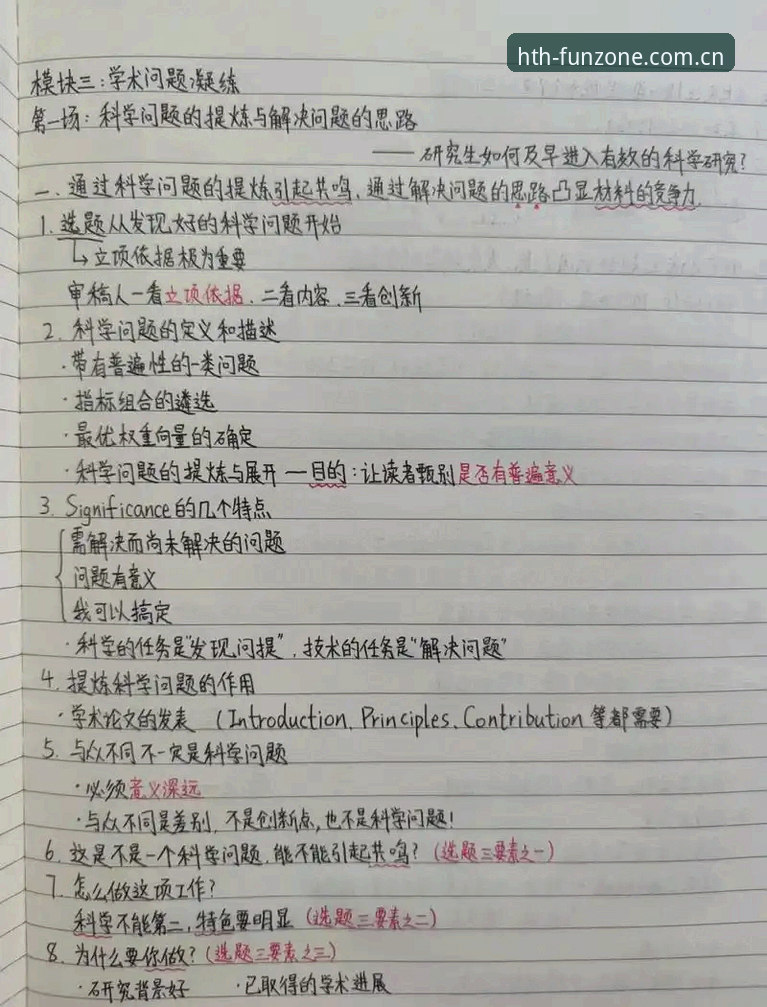 hth-funzone.com.cn
模块三:学术问题凝练
第一场:科学问题的提炼与解决问题的思路
——研究生如何及早进入有效的科学研究?
一、通过科学问题的提炼引起共鸣,通过解决问题的思路凸显材料的竞争力.
1. 选题从发现好的科学问题开始
↳立项依据极为重要
审稿人一看立项依据、二看内容、三看创新
2. 科学问题的定义和描述
·带有普遍性的一类问题
·指标组合的遴选
·最优权重向量的确定
·科学问题的提炼与展开—目的:让读者甄别是否有普遍意义
3. Significance的几个特点
需解决而尚未解决的问题
问题有意义
我可以搞定
·科学的任务是"发现问提",技术的任务是"解决问题"
4. 提炼科学问题的作用
·学术论文的发表 (Introduction、Principles、Contribution 等都需要)
5. 与众不同不一定是科学问题
·必须意义深远
·与众不同是差别,不是创新点,也不是科学问题!
6. 这是不是一个科学问题,能不能引起共鸣?(选题三要素之一)
7. 怎么做这项工作?
科学不能第二,特色要明显(选题三要素之二)
8. 为什么要你做?(选题三要素之三)
·研究背景好 ·已取得的学术进展